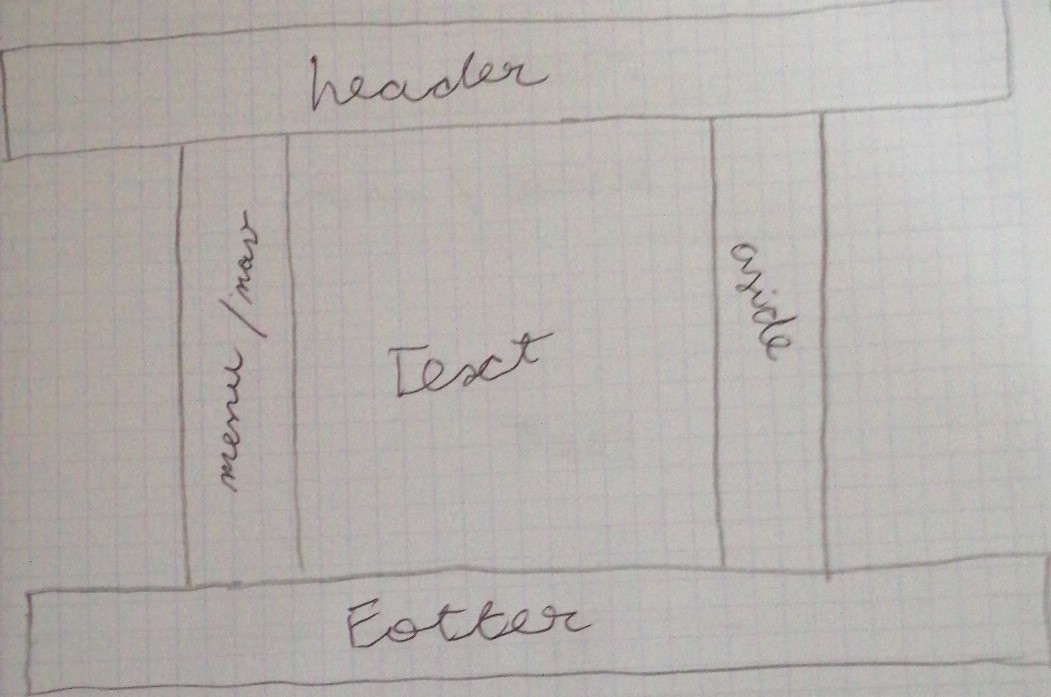 header
menu/nav
Text
aside
Fotter